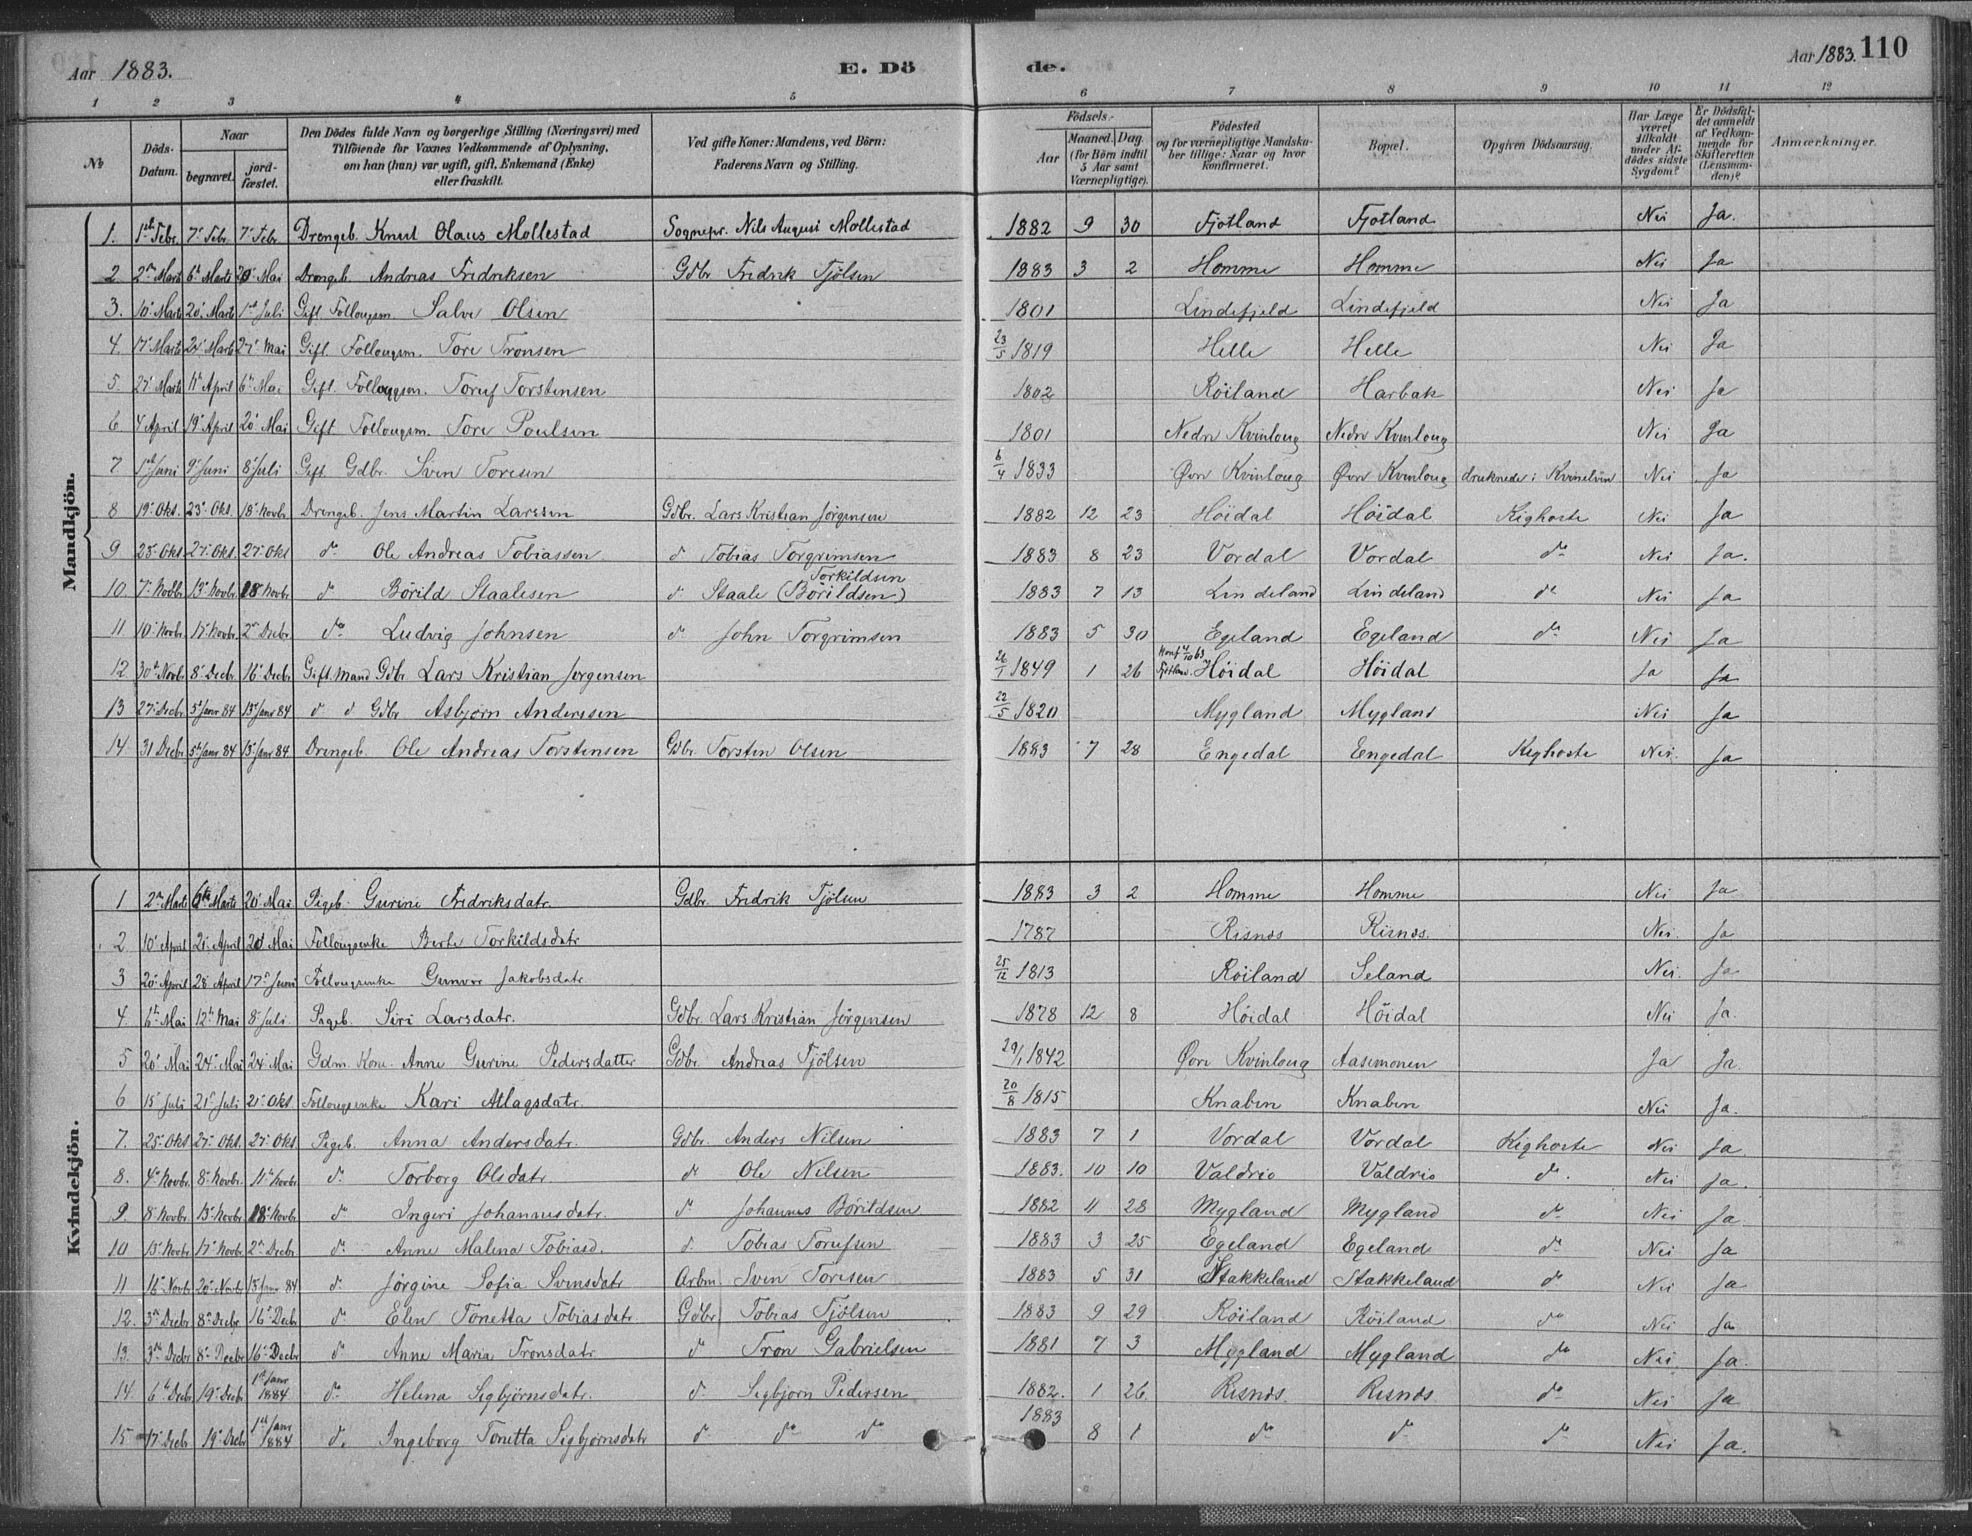 Aar 1883. E. Dö de. Aar 1883. 110
1 2 3 4 5 6 7 8 9 10 11 12
No Döds-Datum. Naar begravet. jord-fæstet. Den Dödes fulde Navn og borgerlige Stilling (Næringsvei) med Tilföiende for Voxnes Vedkommende af Oplysning, om han (hun) var ugift, gift, Enkemand (Enke) eller fraskilt. Ved gifte Koner: Mandens, ved Börn: Faderens Navn og Stilling. Födsels- Aar Maaned. Dag. (for Börn indtil 5 Aar samt Værnepligtige). Födested og for værnepligtige Mandskaber tillige: Naar og hvor konfirmeret. Bopæl. Opgiven Dödsaarsag. Har Læge været tilkaldt under Afdödes sidste Sygdom? Er Dödsfaldet anmeldt af Vedkommende for Skifteretten (Lensmanden)? Anmærkninger.
Mandkjön.
1. 1ste Febr. 7' Febr 7' Febr Drengeb. Knut Olaus Mollestad Sognepr. Nils August Mollestad 1882 9 30 Fjotland Fjotland Nei Ja.
2 2den Marts 6te Marts 20' Mai Drengeb. Andreas Fredriksen Gdbr Fredrik Tjölsen 1883 3 2 Homme Homme Nei Ja
3. 10' Marts 20' Marts 1ste Juli Gift Föllougsm. Salve Olsen 1801 Lindefjeld Lindefjeld Nei Ja
4. 17' Marts 24' Marts 27' Mai Gift. Föllougsm. Tore Tronsen 23/5 1819 Helle Helle Nei Ja
5. 27' Marts 11te April 6te Mai Gift. Föllougsm. Toruf Torstensen 1802 Röiland Harbak Nei Ja
6 4 April 19' April 20' Mai Gift Föllougsm. Tore Poulsen 1801 Nedre Kvinloug Nedre Kvinloug Nei Ja
7 1ste Juni 9' Juni 8' Juli Gift. Gdbr. Sven Toresen 6/4 1833 Øvre Kvinloug Øvre Kvinloug druknede i Kvinelven Nei Ja
8 19' Okt. 23' Okt. 18' Novbr Drengeb. Jens Martin Larssen Gdbr. Lars Kristian Jörgensen 1882 12 23 Höidal Höidal Kighoste Nei Ja
9 23' Okt 27' Okt. 27' Okt do Ole Andreas Tobiassen do Tobias Torgrimsen 1883 8 23 Vordal Vordal do Nei Ja.
10. 7' Novbr 13' Novbr. 18' Novbr do Börild Staalesen do Staale (Börildsen) Torkildsen 1883 7 13 Lindeland Lindeland do Nei Ja
11 10' Novbr. 17' Novbr. 2' Decbr. do Ludvig Johnsen do John Torgrimsen 1883 5 30 Egeland Egeland do Nei Ja
12 30te Novbr 8' Decbr. 16' Decbr Gift. Mand Gdbr Lars Kristian Jørgensen 26/1 1849 1 26 Konf 4/10 63 Fjotland. Höidal Höidal Ja Ja
13 27' Decbr. 5' Janr 84 13' Janr 84 do do Gdbr Asbjørn Anderssen 22/5 1820 Mygland Mygland Nei Ja
14. 31 Decbr 5te Janr 84 13' Janr 84. Drengeb. Ole Andreas Torstensen Gdbr. Torsten Olsen 1883 7 28 Engedal Engedal Kighoste Nei. Ja
Kvindekjön.
1 2den Marts 6te Marts 20' Mai Pigeb. Gurine Fredriksdatr. Gdbr. Fredrik Tjölsen 1883 3 2 Homme Homme Nei Ja
2 10' April 21' April 20' Mai Föllougsenke Berte Torkildsdatr 1787 Risnes Risnes. Nei. Ja
3 20' April 28' April 17' Juni Föllougsenke Gunvor Jakobsdatr 25/12 1813 Röiland Seland Nei. Ja
4. 6te Mai 12te Mai 8' Juli. Pigeb. Siri Larsdatr. Gdbr. Lars Kristian Jörgensen 1878 12 8 Höidal Höidal Nei Ja.
5 20' Mai 24' Mai 24' Mai Gdm. Kone. Anne Gurine Pedersdatter Gdbr. Andreas Tjölsen 29/1 1842 Øvre Kvinloug Aasemonen Ja Ja
6 15' Juli 21' Juli 21' Okt. Föllougsenke Kari Atlagsdatr. 20/8 1815 Knaben Knaben Nei Ja.
7. 25' Okt 27' Okt. 27' Okt. Pigeb. Anna Andersdatr. Gdbr. Anders Nilsen 1883 7 1 Vordal Vordal Kighoste Nei Ja
8. 4' Novbr. 8' Novbr. 11te Novbr do Torborg Olsdatr. do Ole Nilsen 1883. 10 10 Valdrio Valdrio do. Nei Ja.
9. 8' Novbr 13' Novbr. 18' Novbr do Ingeri Johannesdatr. do Johannes Börildsen 1882 11 28 Mygland Mygland do Nei Ja
10 15' Novbr 17' Novbr. 2' Decbr do Anne Malena Tobiasd. do Tobias Torufsen 1883 3 25 Egeland Egeland do Nei Ja
11 16' Novbr 20' Novbr 13' Janr 84 do Jörgine Sofia Svensdatr Arbm. Sven Toresen 1883 5 31 Stakkeland Stakkeland do Nei Ja
12. 3' Decbr 8' Decbr. 16' Decbr do Elen Tonetta Tobiasdatr. Gdbr Tobias Tjölsen 1883 9 29 Röiland Röiland do Nei Ja
13. 3' Decbr 8' Decbr 16' Decbr do Anne Maria Tronsdatr. do Tron Gabrielsen 1881 7 3 Mygland Mygland do Nei. Ja.
14. 6te Decbr 19' Decbr 1ste Janr 1884 do Helena Sigbjörnsdatr. do Sigbjorn Pedersen 1882. 1 26 Risnes Risnes do Nei Ja
15 17' Decbr 19' Decbr 1ste Janr 1884 do. Ingeborg Tonetta Sigbjørnsdatr do do do 1883 8 1 do do do Nei Ja.